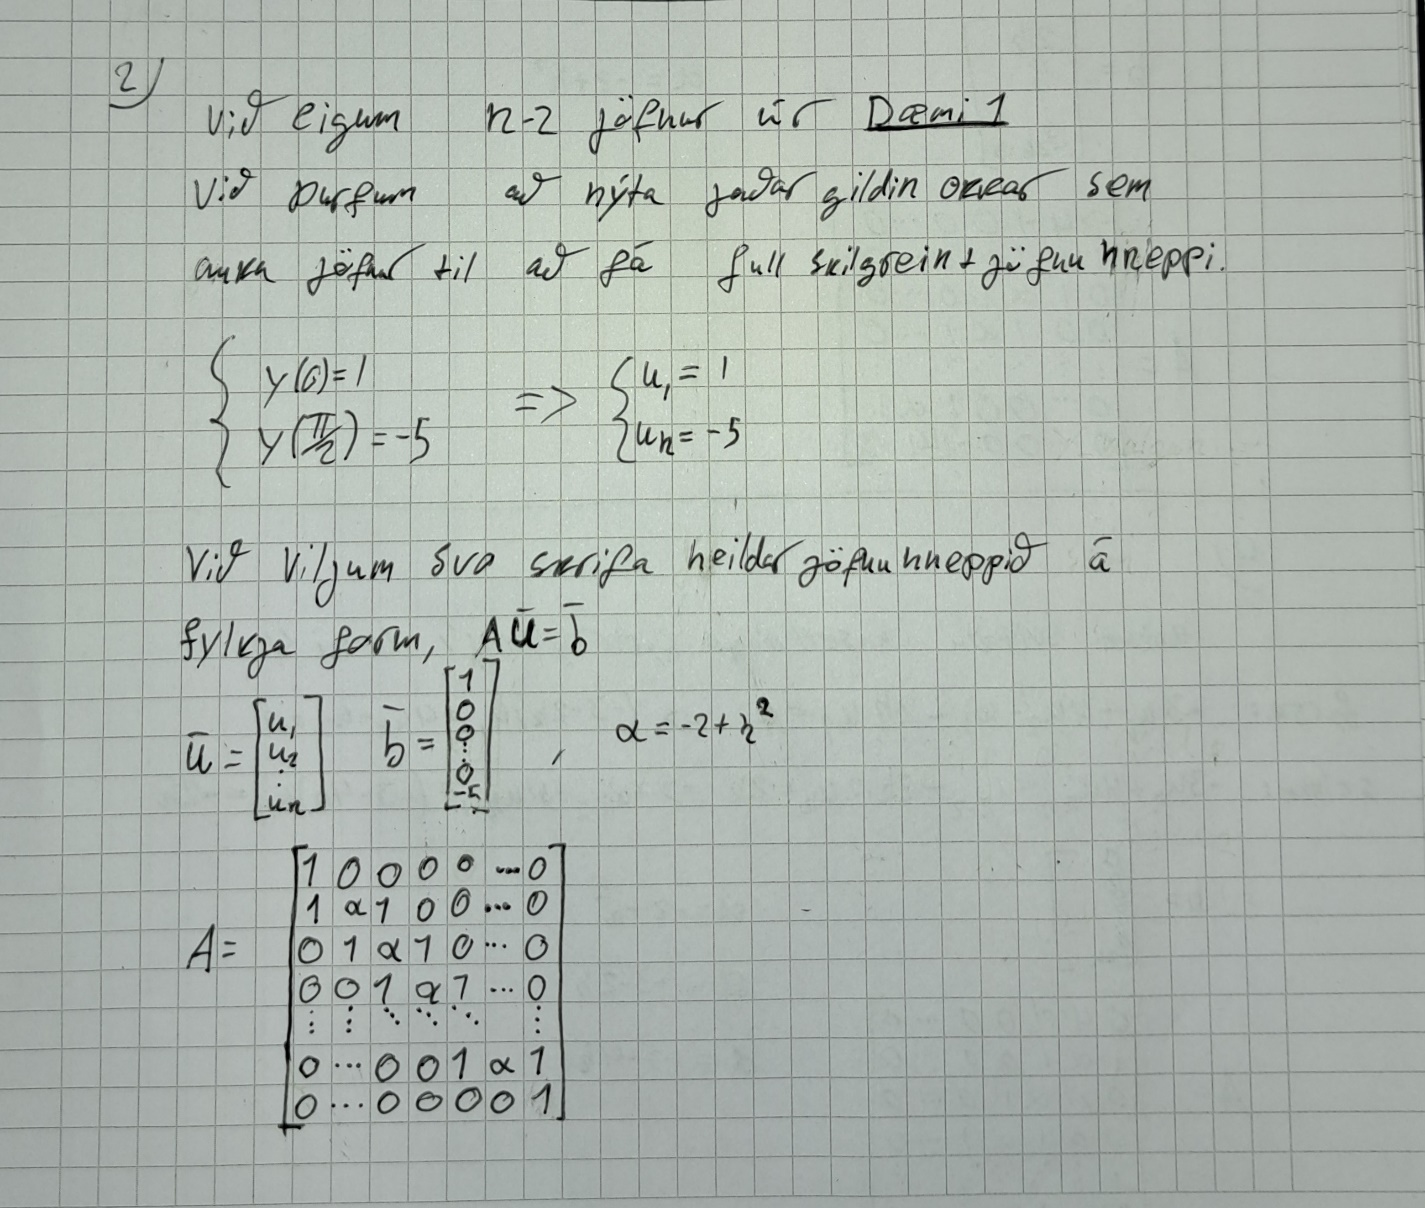 2)
Við eigum n-2 jöfnur úr Dæmi 1
Við þurfum að nýta jaðar gildin okkar sem
auka jöfnur til að fá full skilgreint jöfnuhneppi.
{ y(0)=1 => { u₁ = 1
y(π/2) = -5 uₙ = -5
Við viljum svo skrifa heildar jöfnuhneppið á
fylkja form, Aū = b̄
ū = [u₁ u₂ ⋮ uₙ] b̄ = [1 0 0 ⋮ 0 -5] , α = -2 + h²
A =
1 0 0 0 0 ... 0
1 α 1 0 0 ... 0
0 1 α 1 0 ... 0
0 0 1 α 1 ... 0
⋮ ⋮ ⋱ ⋱ ⋱ ⋮
0 ... 0 0 1 α 1
0 ... 0 0 0 0 1